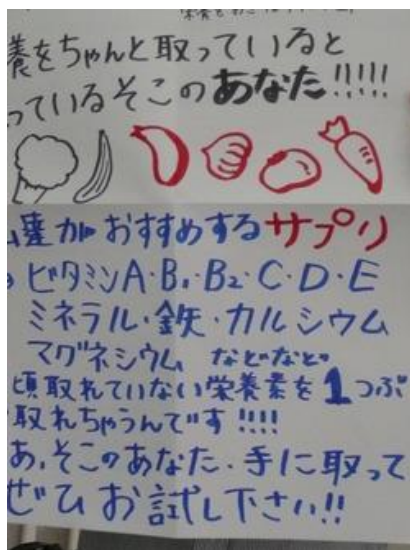 養をちゃんと取っていると
っているそこのあなた!!!!!
達がおすすめするサプリ
ビタミンA・B₁・B₂・C・D・E
ミネラル・鉄・カルシウム
マグネシウム などなど
頃取れていない栄養素を1つぶ
取れちゃうんです!!!!
あ、そこのあなた、手に取って
ぜひお試し下さい!!